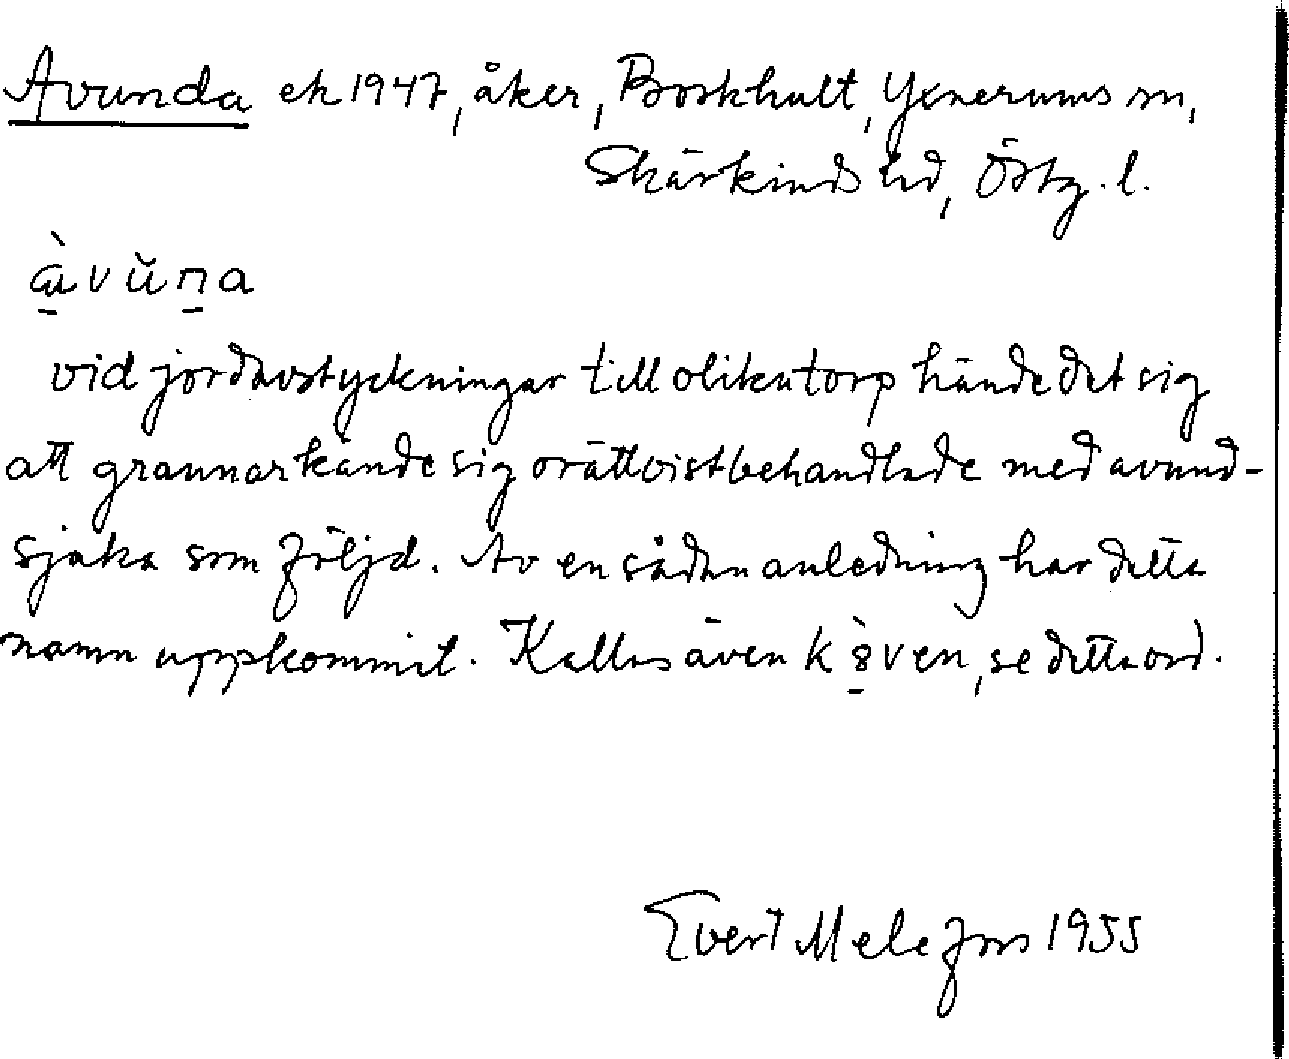 Avunda ek 1947, åker, Borkhult, Yxnerums sn,
Skärkinds hd, Östg. l.
à̱vŭṉa
vid jordavstyckningar till olika torp hände det sig
att grannar kände sig orättvist behandlade med avund-
sjuka som följd. Av en sådan anledning har detta
namn uppkommit. Kallas även k 8̱̀ven, se detta ord.
Evert Melefors 1955